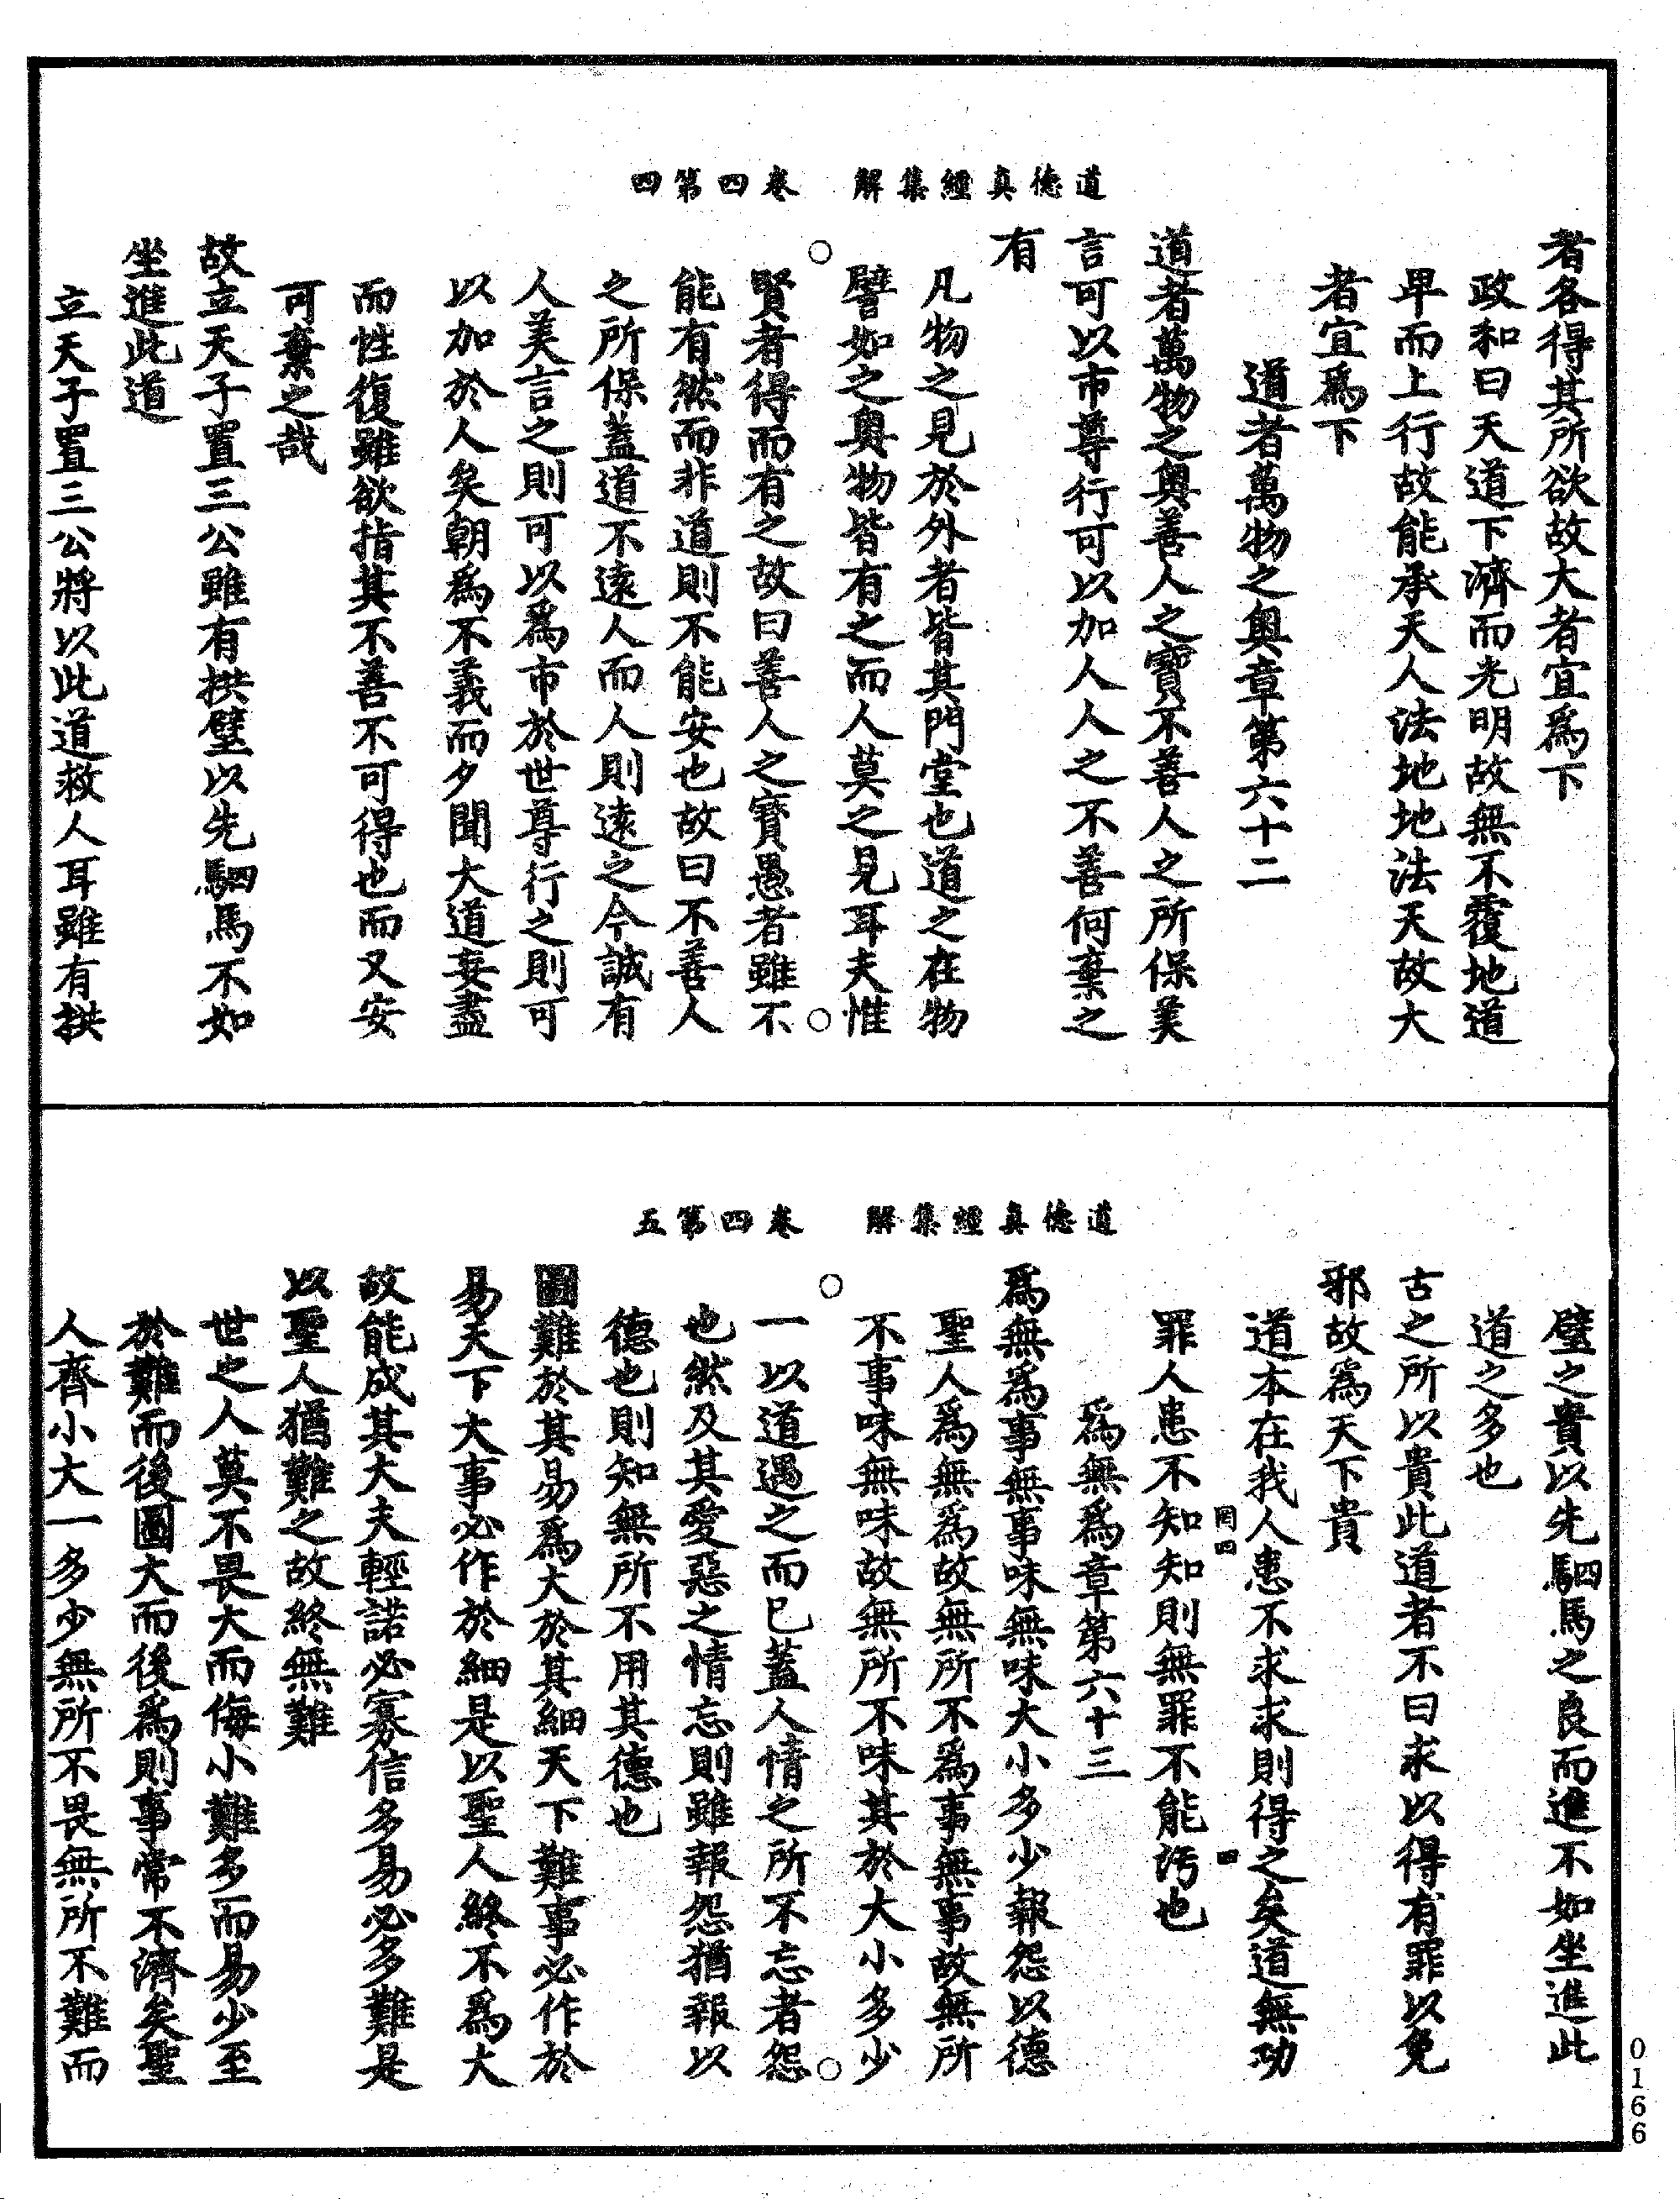 道德真經集解　卷四第四
者各得其所欲故大者宜爲下
政和曰天道下濟而光明故無不覆地道
早而上行故能承天人法地地法天故大
者宜爲下
道者萬物之奧章第六十二
道者萬物之奧善人之寶不善人之所保美
言可以市尊行可以加人人之不善何棄之
有
凡物之見於外者皆其門堂也道之在物
譬如之奧物皆有之而人莫之見耳夫惟
賢者得而有之故曰善人之寶愚者雖不
能有然而非道則不能安也故曰不善人
之所保蓋道不遠人而人則遠之今誠有
人美言之則可以爲市於世尊行之則可
以加於人矣朝爲不義而夕聞大道妄盡
而性復雖欲指其不善不可得也而又安
可棄之哉
故立天子置三公雖有拱璧以先駟馬不如
坐進此道
立天子置三公將以此道救人耳雖有拱
道德真經集解　卷四第五
璧之貴以先駟馬之良而進不如坐進此
道之多也
古之所以貴此道者不曰求以得有罪以免
邪故爲天下貴
道本在我人患不求求則得之矣道無功
罔四　四
罪人患不知知則無罪罪不能污也
爲無爲章第六十三
爲無爲事無事味無味大小多少報怨以德
聖人爲無爲故無所不爲事無事故無所
不事味無味故無所不味其於大小多少
一以道遇之而已蓋人情之所不忘者怨
也然及其愛惡之情忘則雖報怨猶報以
德也則知無所不用其德也
圖難於其易爲大於其細天下難事必作於
易天下大事必作於細是以聖人終不爲大
故能成其大夫輕諾必寡信多易必多難是
以聖人猶難之故終無難
世之人莫不畏大而侮小難多而易少至
於難而後圖大而後爲則事常不濟矣聖
人齊小大一多少無所不畏無所不難而
0166